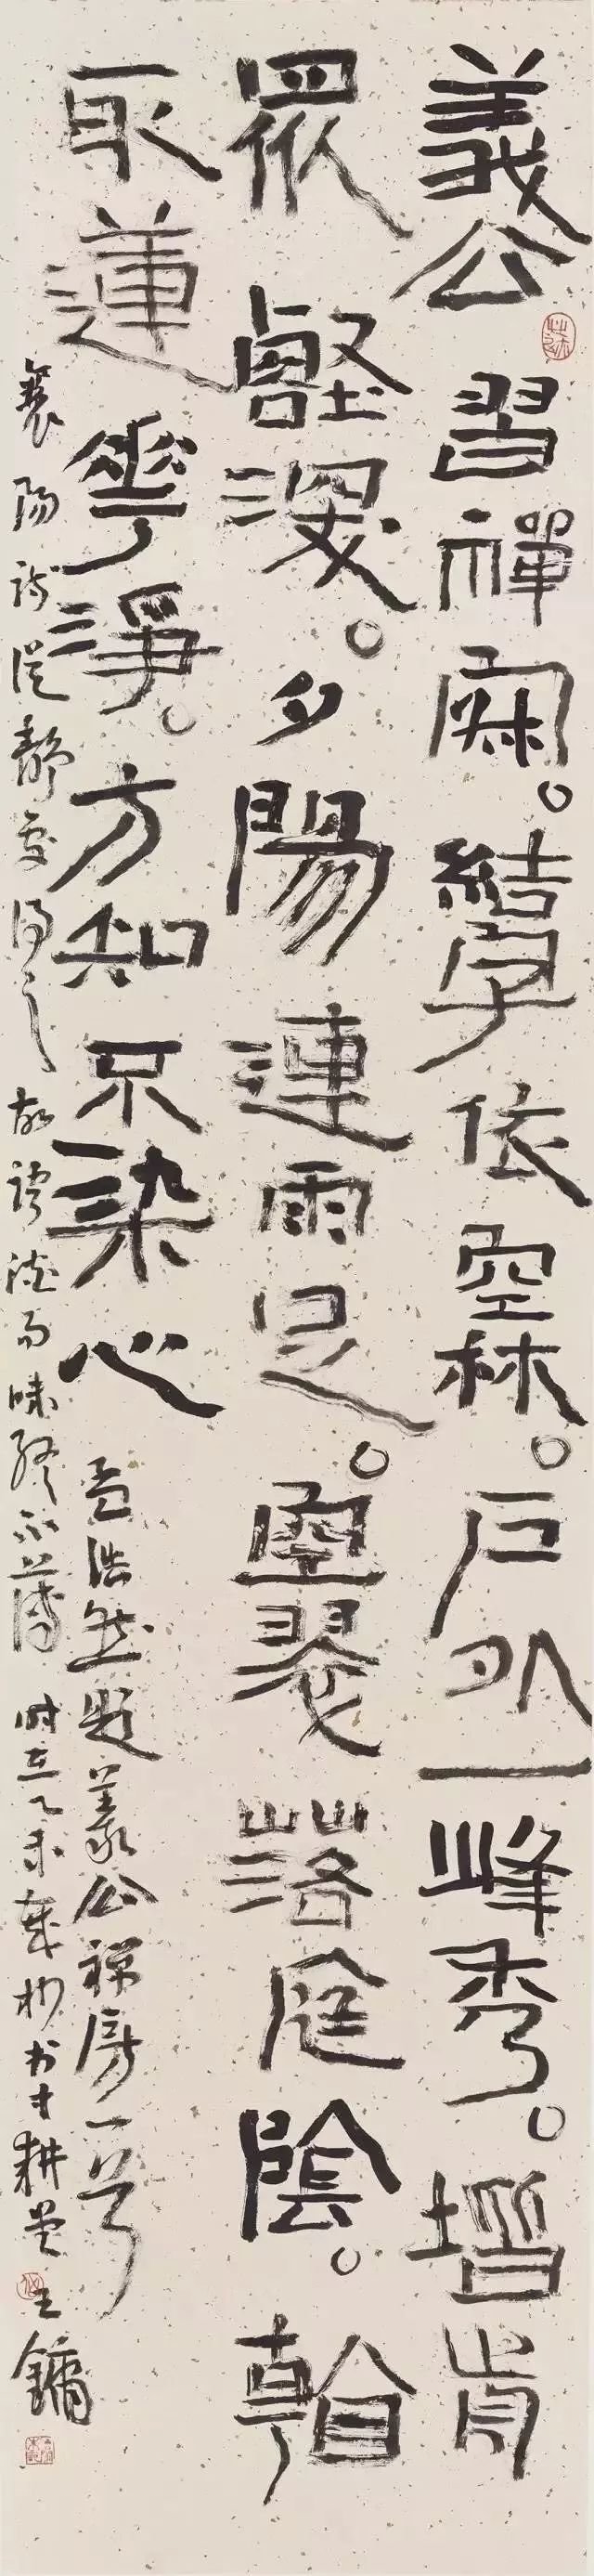 義公習禪寂。結宇依空林。戶外一峰秀。堦前
眾壑深。夕陽連雨足。空翠落庭陰。看
取蓮華淨。方知不染心 孟浩然題義公禪房一
襄陽詩從靜處得之故語淡而味終不薄 时在乙未歲杪 耕堂王鏞